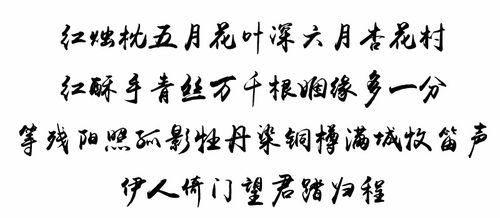 红烛枕五月花叶深六月杏花村
红酥手青丝万千根姻缘多一分
等残阳照孤影牡丹染铜樽满城牧笛声
伊人倚门望君踏归程